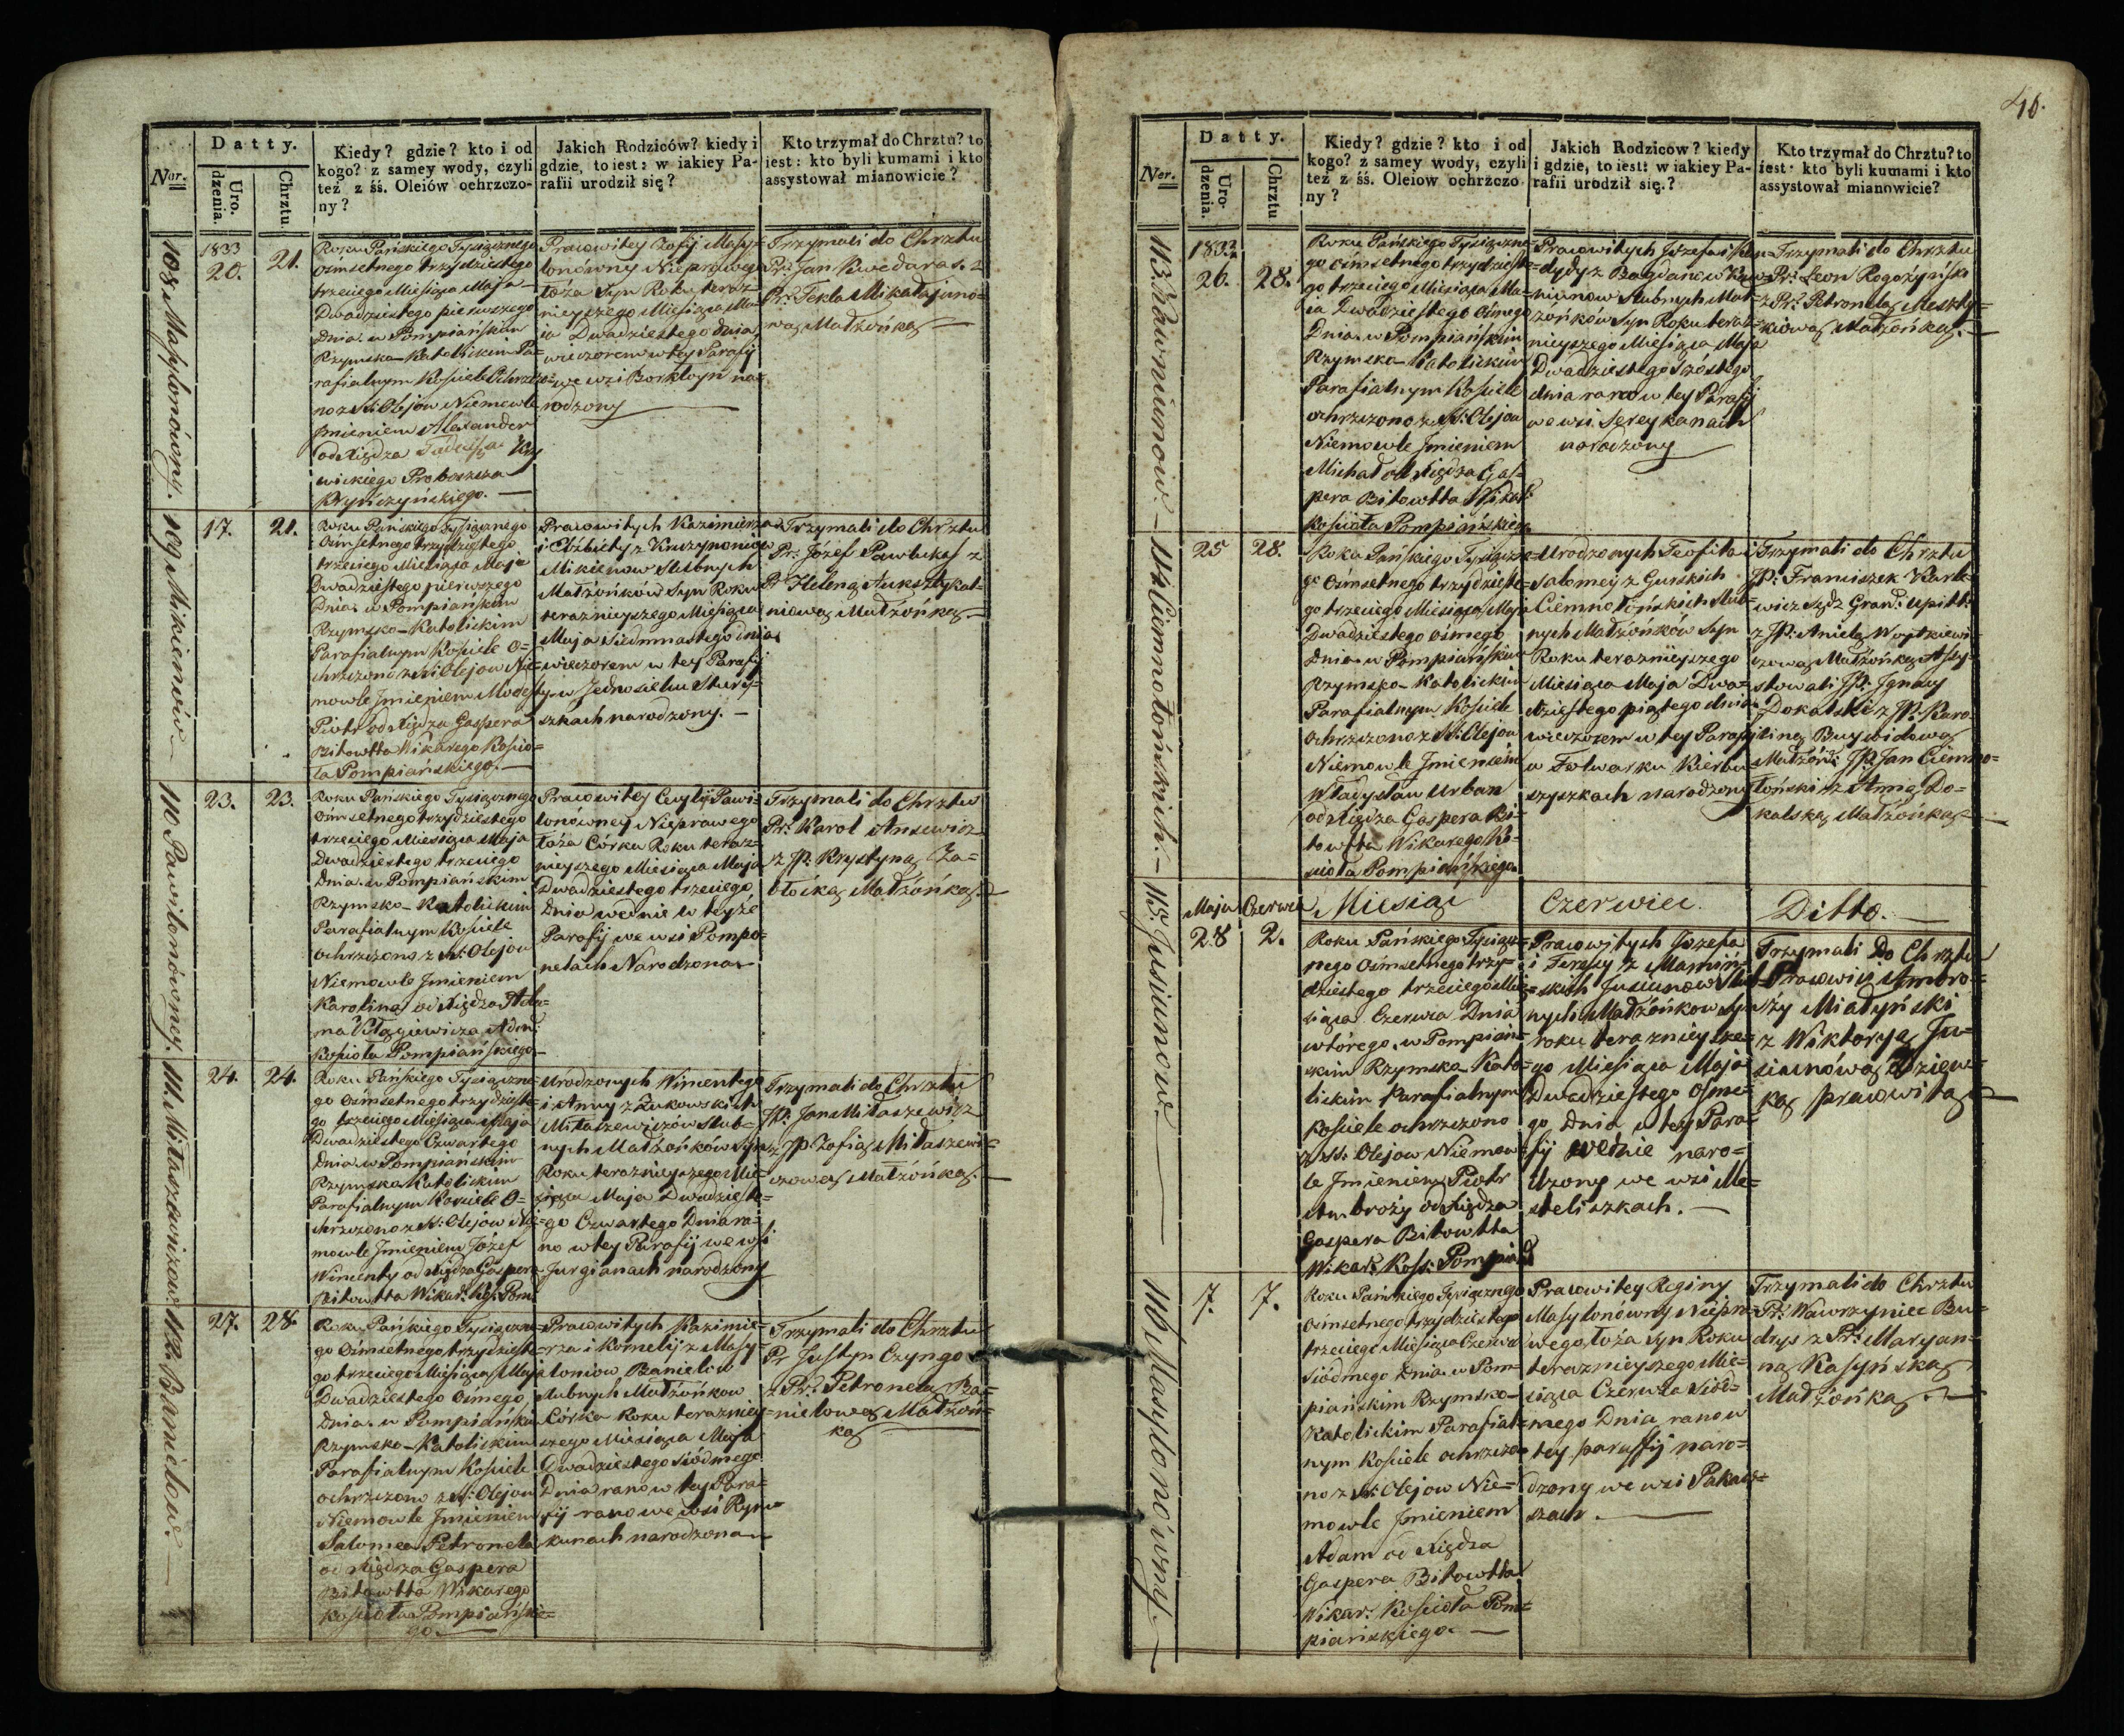 Nor.
Datty.
Uro. dzenia.
Chrztu.
Kiedy? gdzie? kto i od
kogo? z samey wody, czyli
też z śś. Oleiów ochrzczo-
ny?
Jakich Rodziców? kiedy i
gdzie, to iest: w iakiey Pa-
rafii urodził się?
Kto trzymał do Chrztu? to
iest: kto byli kumami i kto
assystował mianowicie?
108 Masylonówny.
1833
20.
21.
Roku Pańskiego Tysiącznego
ośmsetnego trzydziestego
trzeciego Miesiąca Maja
Dwadziestego pierwszego
Dnia. w Pompiańskim
Rzymsko-Katolickim Pa=
rafialnym Kościele Ochrzczo=
no z SS: Olejow Niemowle
Jmieniem Alexander
od Xiędza Tadeusza
wickiego Proboszcza
Kryńczyńskiego.
Pracowitey Zofij Masy=
lonówny Nieprawego
łoża Syn Roku teraz=
nieyszego Miesiąca Ma=
ia Dwadziestego dnia
wieczorem w tey Parafij
we wsi Borkloyn na=
rodzony
Trzymali do Chrztu
Pr: Jan Kwedaras z
Pr: Tekla Mikałajuno=
wą Małżońką
109 Mikienów
17.
21.
Roku Pańskiego Tysiącznego
Ośmsetnego trzydziestego
trzeciego Miesiąca Maja
Dwadziestego pierwszego
Dnia. w Pompiańskim
Rzymsko-Katolickim
Parafialnym Kościele O=
chrzczono z SS: Olejow Nie=
mowle Jmieniem Modest
Piotr od Xiędza Gaspera
Bitowtta Wikarego Kościo=
ła Pompiańskiego.
Pracowitych Kazimierza
i Elżbiety z Kruzynonow
Mikienow Slubnych
Małżonków Syn Roku
teraznieyszego Miesiąca
Maja Siedmnastego dnia
wieczorem w tey Parafij
w Jednosielu Stury=
szkach narodzony.
Trzymali do Chrztu
Pr: Józef Pawlukas z
Pr Heleną Auksztykal=
niową Małżońką
110 Pawilonówney.
23.
23.
Roku Pańskiego Tysiącznego
Ośmsetnego trzydziestego
trzeciego Miesiąca Maja
Dwadziestego trzeciego
Dnia. w Pompiańskim
Rzymsko-Katolickim
Parafialnym Kościele
ochrzczono z SS: Olejow
Niemowle Jmieniem
Karolina od Xiędza Ada=
ma Adm:
Kościoła Pompiańskiego
Pracowitey Cecylij Pawi=
lonówney Nieprawego
łóża Córka Roku teraz=
nieyszego Miesiąca Maja
Dwadziestego trzeciego
Dnia wednie w teyże
Parafij we wsi Pompo=
netach Narodzona
Trzymali do Chrztu
Pr: Karol Ansewicz
z JP. Krystyną Za=
błocką Małżońką
111. Miłaszewiczów.
24.
24.
Roku Pańskiego Tysiączne=
go Ośmsetnego trzydzieste=
go trzeciego Miesiąca Maja
Dwadziestego Czwartego
Dnia w Pompiańskim
Rzymsko Katolickim
Parafialnym Kościele O=
chrzczono z SS: Olejow Nie=
mowle Jmieniem Józef
Wincenty od Xiędza Gaspera
Bitowtta Wikar: Koś: Pom:
Urodzonych Wincentego
i Anny z Żukowskich
Miłaszewiczów Slub=
nych Małżonków Syn
Roku teraznieyszego Mie=
siąca Maja Dwadzieste=
go Czwartego Dnia ra=
no w tey Parafij we wsi
Jurgianach narodzony
Trzymali do Chrztu
JP: Jan Miłaszewicz
z JP. Zofią Miłaszewi=
czową Małżońką.
112. Banielow.
27.
28.
Roku Pańskiego Tysiączne=
go Ośmsetnego trzydzieste=
go trzeciego Miesiąca Maja
Dwadziestego Ośmego
Dnia. w Pompiańskim
Rzymsko-Katolickim
Parafialnym Kościele
ochrzczono z SS: Olejow
Niemowle Jmieniem
Salomea Petronela
od Xiędza Gaspera
Bitowtta Wikarego
Kościoła Pompiańskie=
go.
Pracowitych Kazimie=
rza i Kornelij z Masy=
loniow Banielow
slubnych Małżonkow
Córka Roku teraznieyszego
Miesiąca Maja
Dwadziestego Siódmego
Dnia rano w tey Para=
fij rano we wsi Rym=
kunach narodzona
Trzymali do Chrztu
Pr Justyn Czyngo
z Pr: Petronelą Ba=
nielową Małżoń=
ką
46.
Nor.
Datty.
Uro. dzenia.
Chrztu
Kiedy? gdzie? kto i od
kogo? z samey wody, czyli
też z śś. Oleiow ochrzczo
ny?
Jakich Rodzicow? kiedy
i gdzie, to iest: w iakiey Pa-
rafii urodził się.?
Kto trzymał do Chrztu? to
iest: kto byli kumami i kto
assystował mianowicie?
113. Kawniunow.
1833
26.
28.
Roku Pańskiego Tysiączne=
go ośmsetnego trzydzieste=
go trzeciego Miesiąca Ma=
ja Dwadziestego Ośmego
Dnia. w Pompiańskim
Rzymsko-Katolickim
Parafialnym Kościele
ochrzczono z SS: Olejow
Niemowle Jmieniem
Michał od Xiędza Gas=
pera Bitowtta Wikar:
Kościoła Pompiańskiego
Pracowitych Józefa i
z Bagdanow Kaw=
niunow Slubnych Mał=
żonków Syn Roku teraz=
nieyszego Miesiąca Maja
Dwadziestego Szóstego
dnia rano w tey Parafij
we wsi. Sereykanach
narodzony
Trzymali do Chrztu
Pr: Leon Rogożyński
z Pr: Petronelą Meszty=
kiową Małżońką.
114 Ciemnołońskich.
25
28.
Roku Pańskiego Tysiączne=
go Ośmsetnego trzydzieste=
go trzeciego Miesiąca Maja
Dwadziestego Ośmego
Dnia. w Pompiańskim
Rzymsko-Katolickim
Parafialnym Kościele
Ochrzczono z SS. Olejow
Niemowle Jmieniem
Władysław Urban
od Xiędza Gaspera Bi=
towtta Wikarego Ko=
ścioła Pompiańskiego
Urodzonych Teofila i
Salomey z Gurskich
Ciemnołońskich Slub=
nych Małżonków Syn
Roku teraznieyszego
Miesiąca Maja Dwa=
dziestego piątego dnia
wieczorem w tey Parafij
w Folwarku Kierbu=
szyszkach narodzony
Trzymali do Chrztu
JP: Franciszek Karb=
wicz Sędz Grani: Upitt:
z JP: Anielą Woytkiewi=
czową Małżońką Assy=
stowali JP: Jgnacy
Dokalski z JP: Karo=
liną Buywidową
Małżoń: JP. Jan Ciemno=
łoński z Anną Do=
kalską Małżońką
Maja
Czerwca
Miesiąc
Czerwiec.
Ditto.
115. Jusiunow.
28
2.
Roku Pańskiego Tysiącz=
nego Ośmsetnego trzy=
dziestego trzeciego Mie=
siąca Czerwca Dnia
wtórego. w Pompiań=
skim Rzymsko-Kato=
lickim Parafialnym
Kościele ochrzczono
z SS. Olejow Niemow=
le Jmieniem Piotr
Ambroży od Xiędza
Gaspera Bitowtta
Wikar: Kośc: Pompiań
Pracowitych Jozefa
i Teressy z Mamiń=
skich Jusiunow Slub=
nych Małżonkow Syn
roku teraznieysze=
go Miesiąca Maja
Dwadziestego Osme=
go Dnia w tey Para=
fij wednie naro=
dzony we wsi Me=
steliszkach.
Trzymali Do Chrztu
Pracowici Ambro=
szy Miadyński
z Wiktorją Ju=
siunówą Dziew=
ką pracowitą
116 Masylonówny.
7.
7.
Roku Pańskiego Tysiącznego
Ośmsetnego trzydziestego
trzeciego Miesiąca Czerwca
siódmego Dnia. w Pom=
piańskim Rzymsko-
Katolickim Parafial=
nym Kościele ochrzczo=
no z SS: Olejow Nie=
mowle Jmieniem
Adam od Xiędza
Gaspera Bitowtta
Wikar: Kościoła Pom=
piańskiego.
Pracowitey Reginy
Masylonówny Niepra=
wego łoża Syn Roku
teraznieyszego Mie=
siąca Czerwca Siód=
mego Dnia rano w
tey parafij naro=
dzony we wsi Pakal=
szach.
Trzymali do Chrztu
Pr: Wawrzyniec Bu=
drys z Pr: Maryan=
ną Kasyńską
Małżońką.